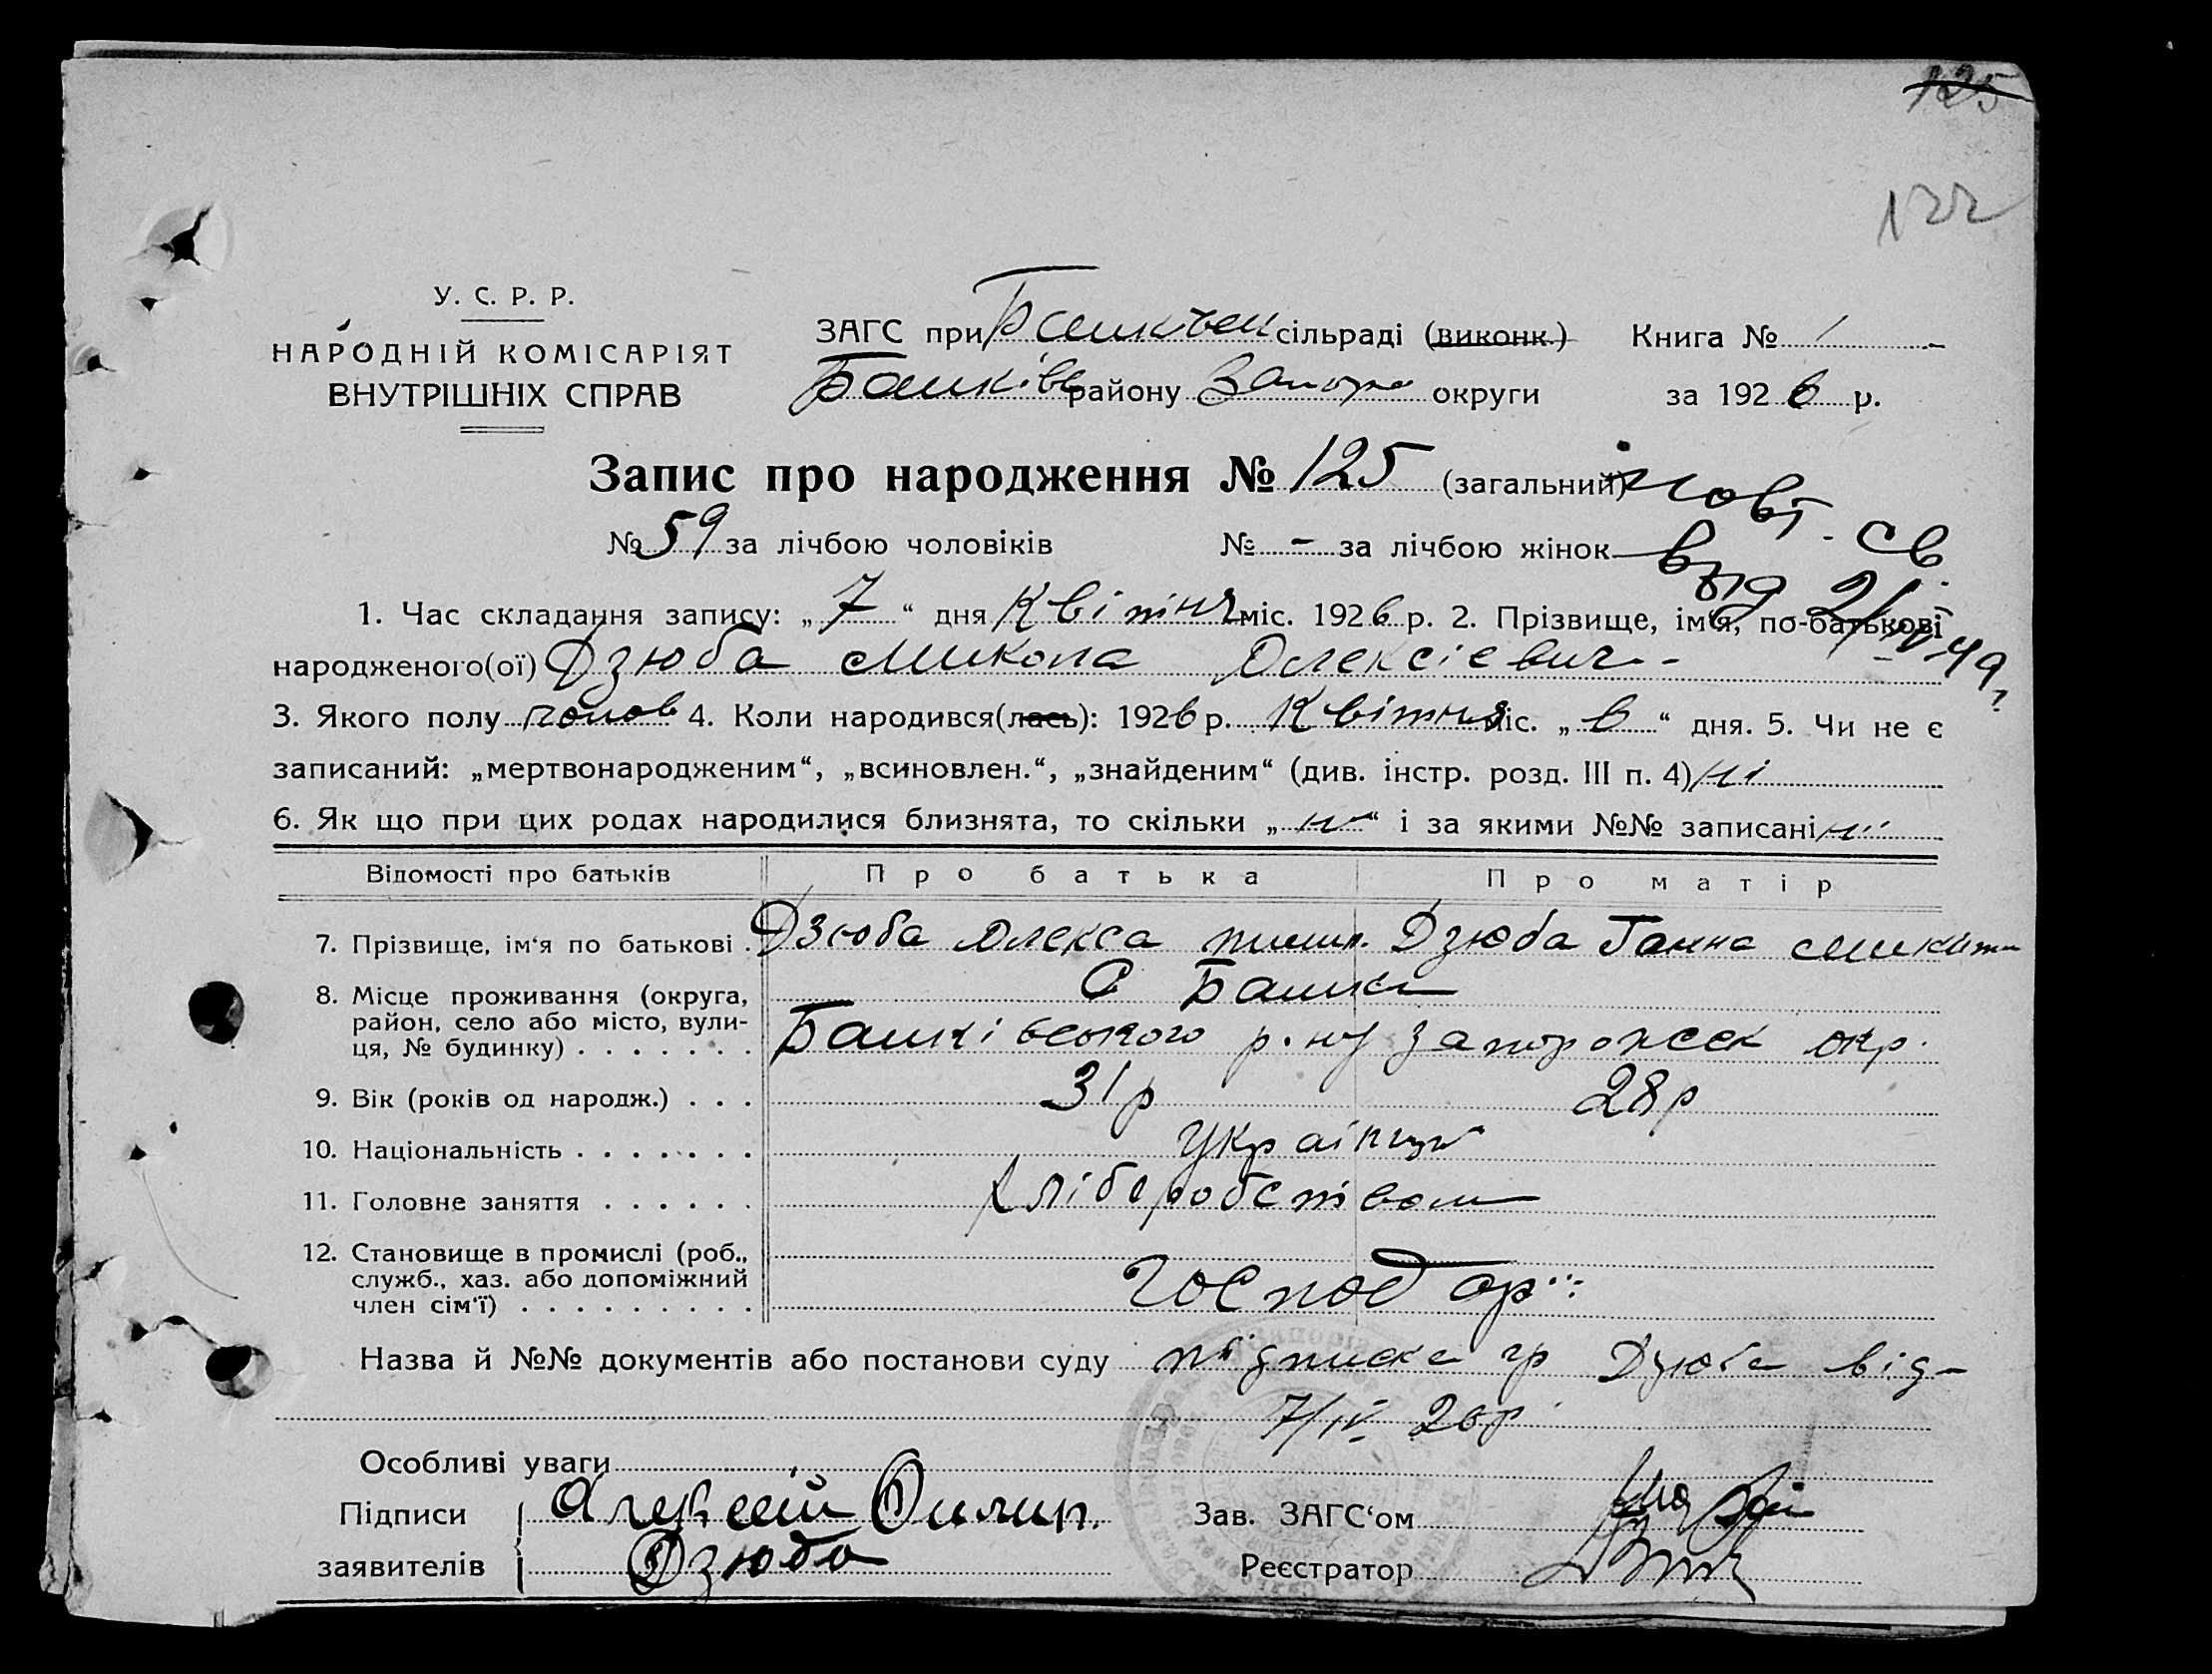 125
122
У. С. Р. Р.
НАРОДНІЙ КОМІСАРІЯТ
ВНУТРІШНІХ СПРАВ
ЗАГС при сільраді (виконк.) Книга № 1
району Запор округи за 1926 р.
Запис про народження № 125 (загальний)
№ 59 за лічбою чоловіків № - за лічбою жінок
повт. св.
1. Час складання запису: „7“ дня Квітня міс. 1926 р. 2. Прізвище, ім'я, по-батькові
народженого(ої) Дзюба Микола Олексієвич
3. Якого полу чолов 4. Коли народився(лась): 1926 р. Квітня міс. „6“ дня. 5. Чи не є
записаний: „мертвонародженим“, „всиновлен.“, „знайденим“ (див. інстр. розд. III п. 4) ні
6. Як що при цих родах народилися близнята, то скільки „ “ і за якими №№ записані ні
Відомості про батьків Про батька Про матір
7. Прізвище, ім'я по батькові . Дзюба Олекса Дзюба Ганна
8. Місце проживання (округа,
район, село або місто, вули-
ця, № будинку) . . . . . . .
С
р.ну Запорожск окр.
9. Вік (років од народж.) . . . 31р 28р
10. Національність . . . . . . . українці
11. Головне заняття . . . . . . Хліборобством
12. Становище в промислі (роб.,
служб., хаз. або допоміжний
член сім'ї) . . . . . . . . . .
Господар
Назва й №№ документів або постанови суду підписка гр Дзюба від
7/IV 26р
Особливі уваги
Підписи Алексей Филип.
заявителів Дзюба
Зав. ЗАГС'ом
Реєстратор